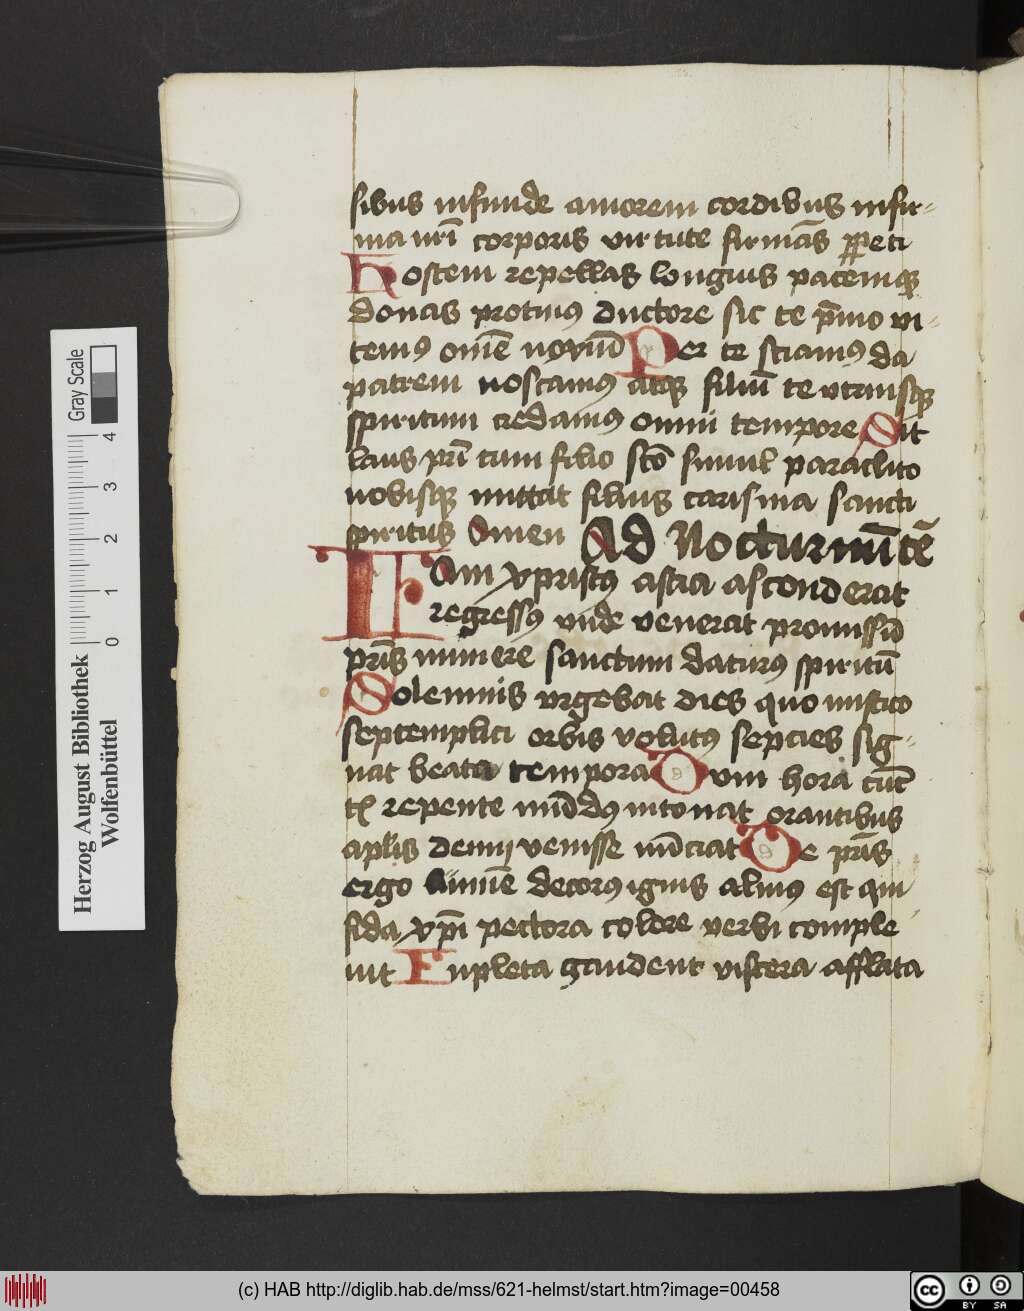 sibus infunde amorem cordibus infir-
ma nr̄i corporis virtute firmās ꝑpeti
Hostem repellas longius pacemqꝫ
dones protinꝰ ductore sic te p̄uio vi-
temꝰ om̄e noxiū Per te sciamꝰ da
patrem noscamꝰ atqꝫ filiū te vtriusqꝫ
spiritum credamꝰ omni tempore Sit
laus pr̄i cum filio sc̄o simul paraclito
nobisqꝫ mittat filius carisma sancti
spiritus Amen Ad Nocturnū
IAm xpristꝰ astra asconderat
regressꝰ vnde venerat promissū
pr̄is munere sanctum daturꝰ spiritū
Solemnis vrgebat dies quo mistico
septemplici orbis volutꝰ septies sig-
nat beata tempora Dum hora cūc
repente mūdꝰ intonat orantibus
aplis deum venisse nūciat De pr̄is
ergo lumīe decorꝰ ignis almꝰ est qui
fida xp̄i pectora colore verbi comple
uit Inpleta gaudent viscera afflata
Herzog August Bibliothek
Wolfenbüttel
0 1 2 3 4
Gray Scale
(c) HAB http://diglib.hab.de/mss/621-helmst/start.htm?image=00458
cc BY SA